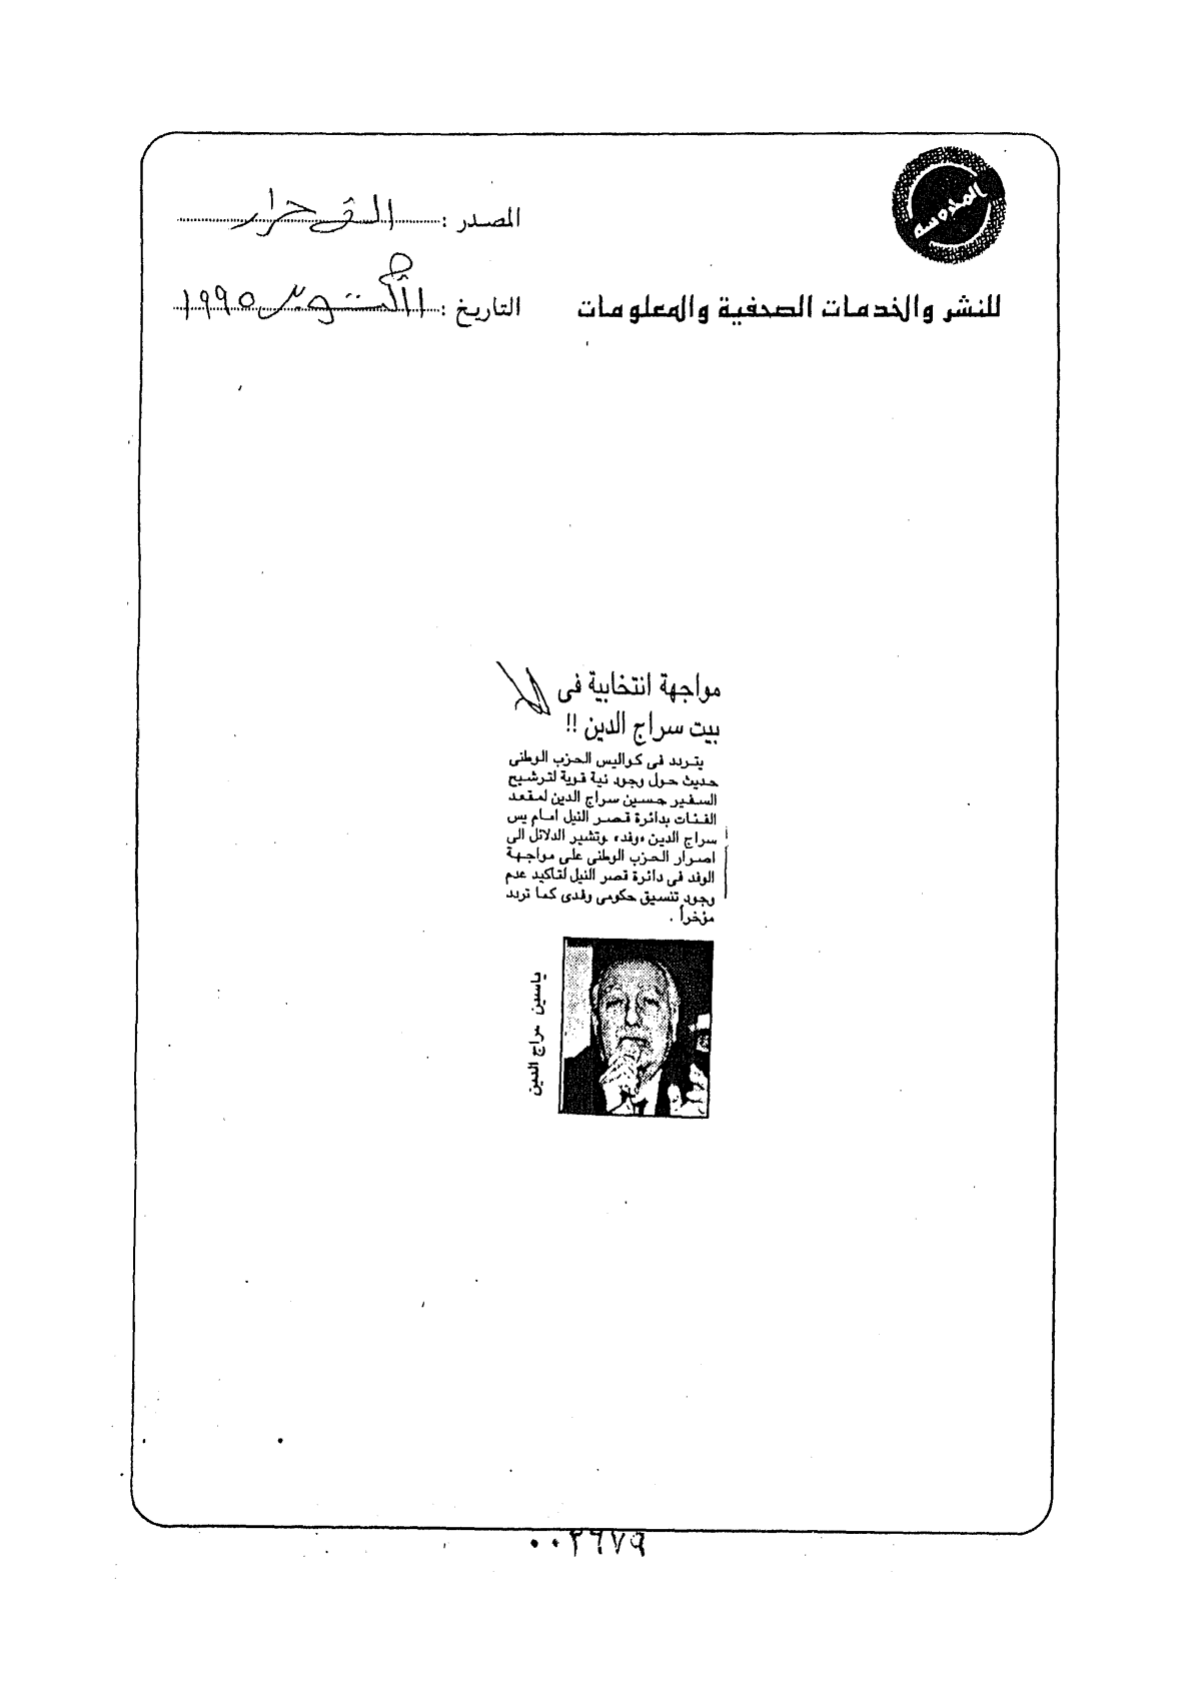 المحروسة
المصدر :
للنشر والخدمات الصحفية والمعلومات
التاريخ : أكتوبر ١٩٩٥
مواجهة انتخابية فى
بيت سراج الدين !!
يتردد فى كواليس الحزب الوطنى
حديث حول وجود نية قوية لترشيح
السفير حسين سراج الدين لمقعد
الفئات بدائرة قصر النيل امام يس
سراج الدين «وفد» وتشير الدلائل الى
اصرار الحزب الوطنى على مواجهة
الوفد فى دائرة قصر النيل لتاكيد عدم
وجود تنسيق حكومى وفدى كما تردد
مؤخراً .
ياسين سراج الدين
٠٠٢٦٧٩